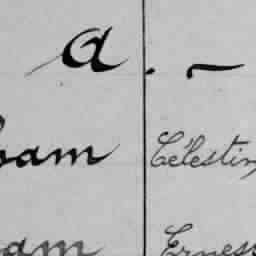 a. -
am Célestin
am Ernes